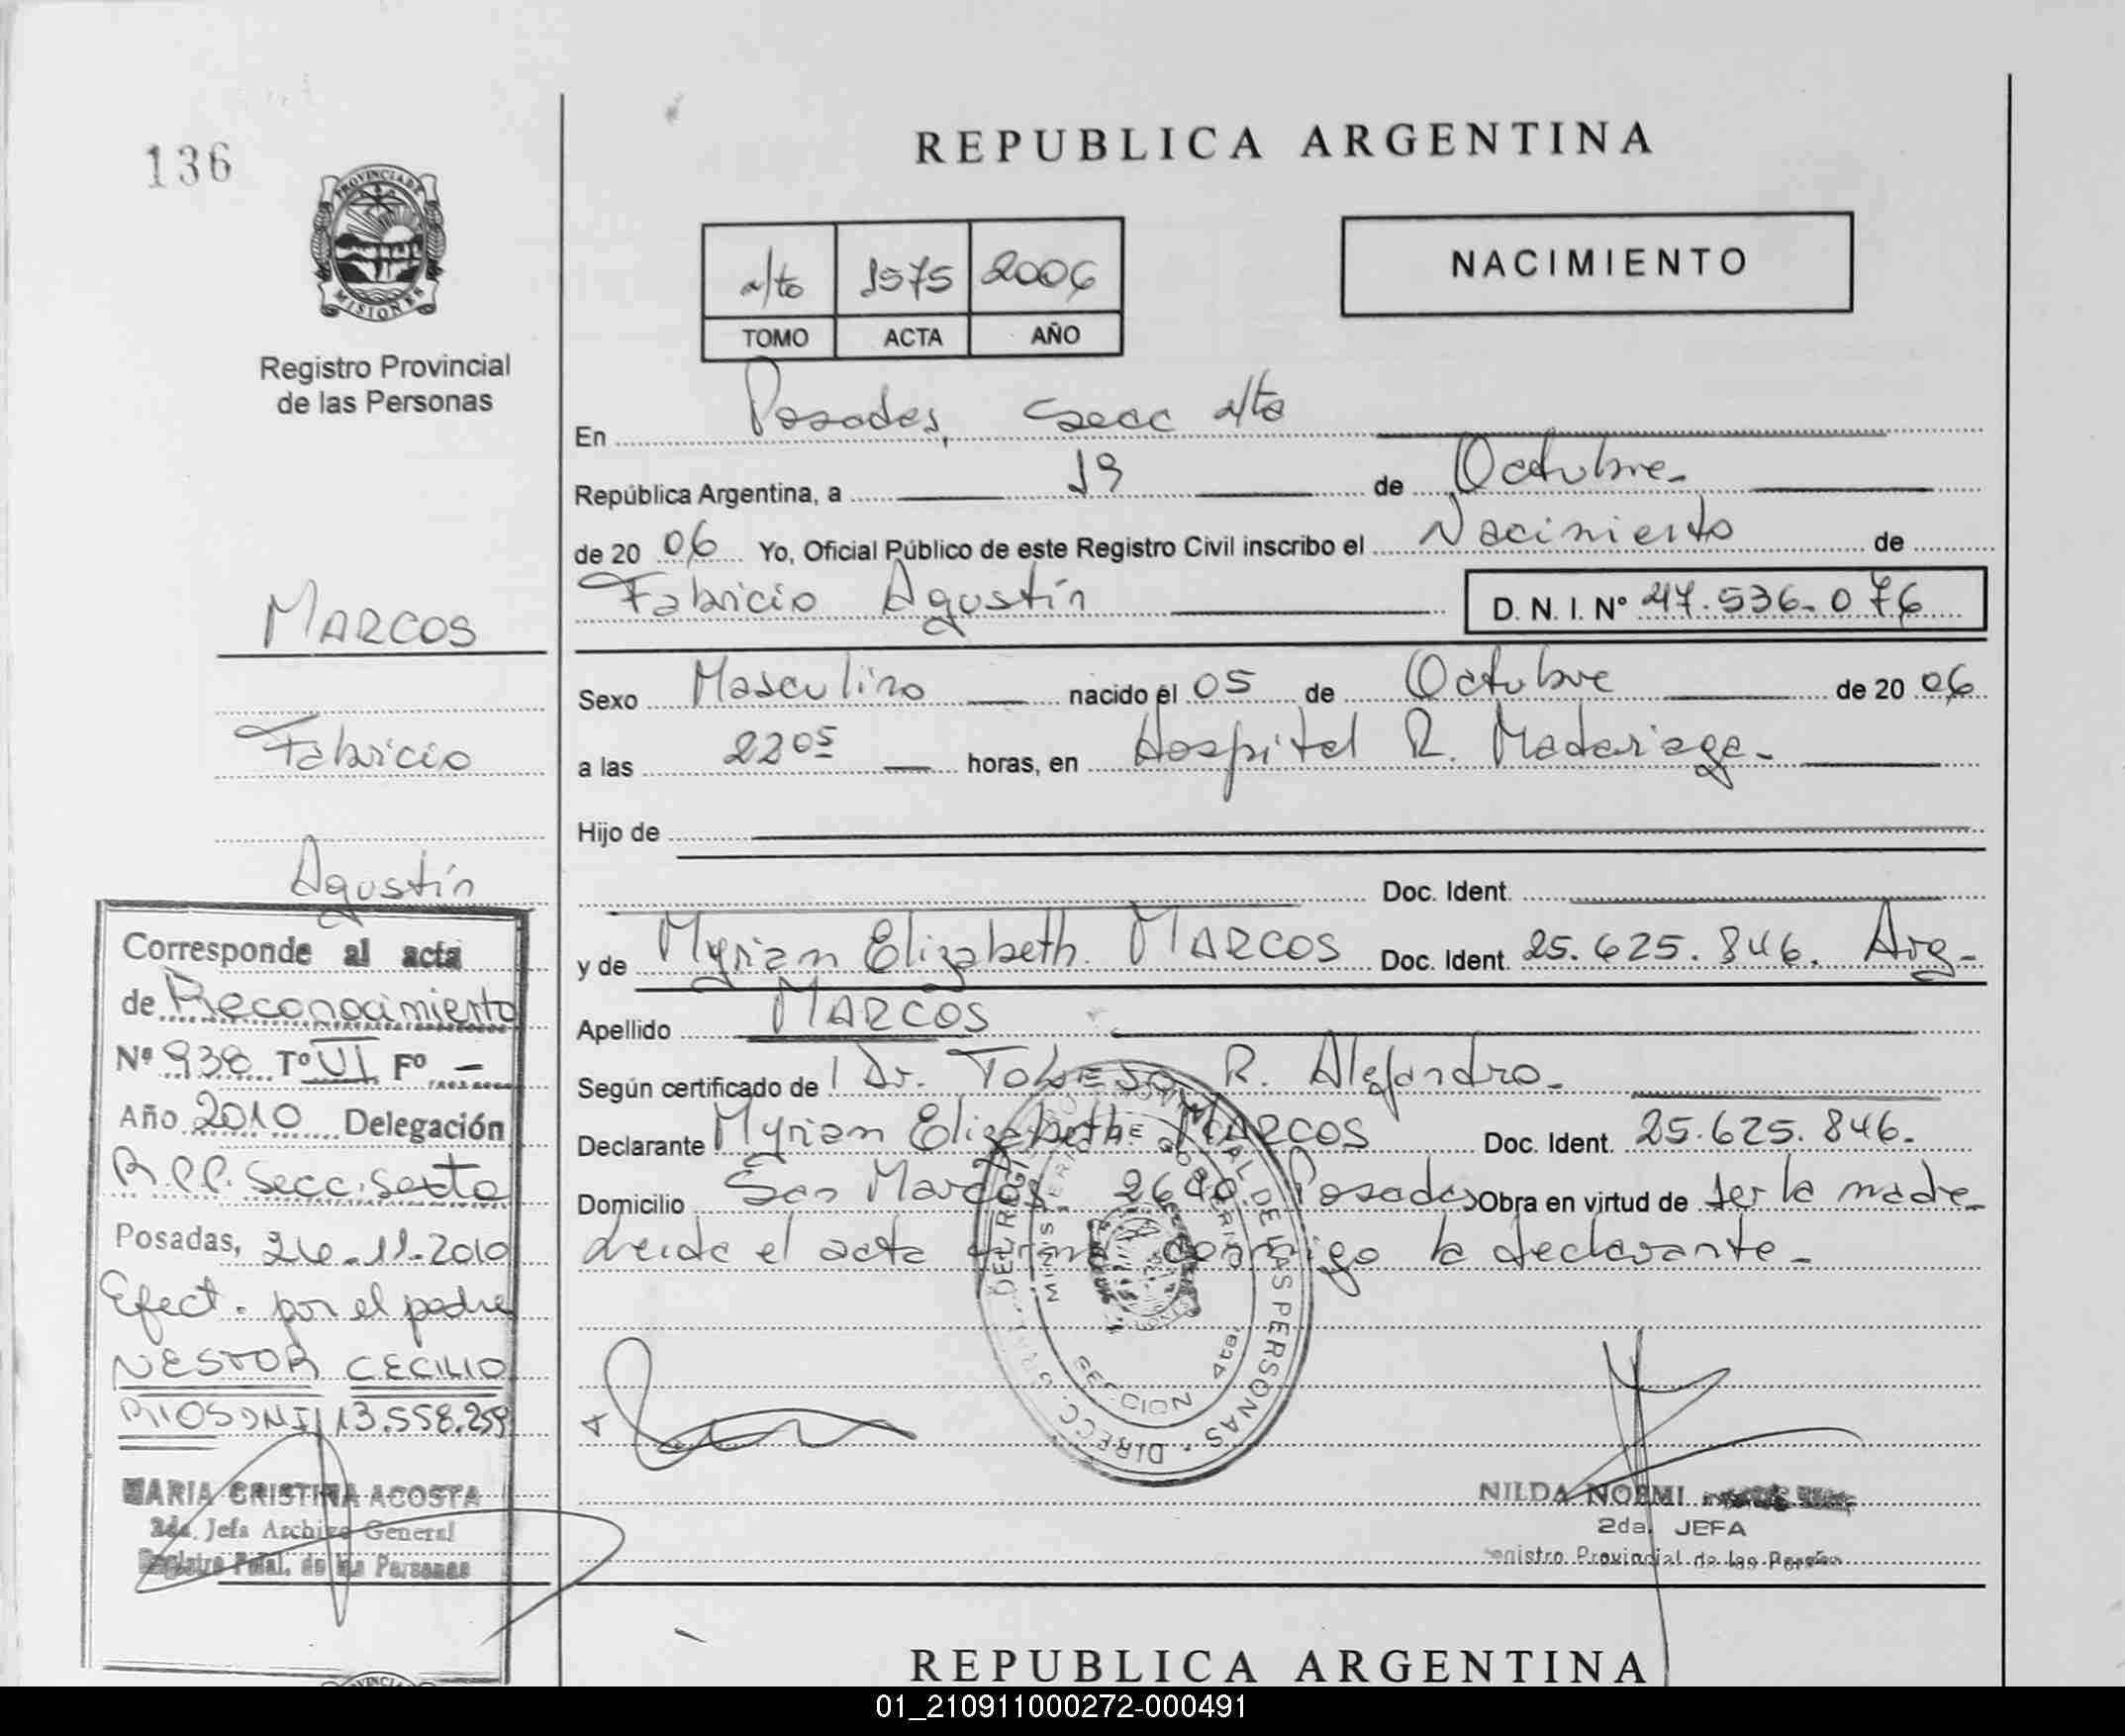 136
PROVINCIA DE
MISIONES
Registro Provincial
de las Personas
MARCOS
Fabricio
Agustín
Corresponde al acta
de Reconocimiento
Nº 938 Tº VI Fº –
Año 2010 Delegación
R.P.P. Secc. Sexta
Posadas, 26-11-2010
Efect. por el padre
NESTOR CECILIO
RIOS DNI 13.558.259
MARIA CRISTINA ACOSTA
2da. Jefa Archivo General
Registro Pcial. de las Personas
REPUBLICA ARGENTINA
4/ta 1575 2006
TOMO ACTA AÑO
NACIMIENTO
En Posadas, Secc 4/ta
República Argentina, a 19 de Octubre-
de 20 06 Yo, Oficial Público de este Registro Civil inscribo el Nacimiento de
Fabricio Agustín D. N. I. Nº 47.536.076
Sexo Masculino nacido el 05 de Octubre de 20 06
a las 22 05 horas, en Hospital R. Madariaga-
Hijo de
Doc. Ident.
y de Myrian Elizabeth MARCOS Doc. Ident. 25.625.846. Arg-
Apellido MARCOS
Según certificado de Dr. R. Alejandro-
Declarante Myrian Elizabeth MARCOS Doc. Ident. 25.625.846.
Domicilio San Marcos Posadas Obra en virtud de ser la madre-
Leida el acta firma conmigo la declarante-
DIRECC. GRAL. DEL REGISTRO PROVINCIAL DE LAS PERSONAS
MINISTERIO DE GOBIERNO
SECCION 4ta.
NILDA NOEMI
2da. JEFA
Registro Provincial de las Personas
REPUBLICA ARGENTINA
01_210911000272-000491